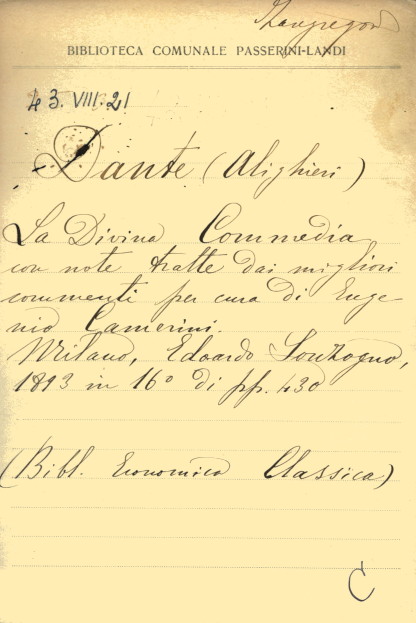 BIBLIOTECA COMUNALE PASSERINI-LANDI
43. VIII. 21
Dante (Alighieri)
La Divina Commedia
con note tratte dai migliori
commenti per cura di Euge
nio Camerini.
Milano, Edoardo Sonzogno,
1893 in 16° di pp. 430
(Bibl. Economica Classica)
C